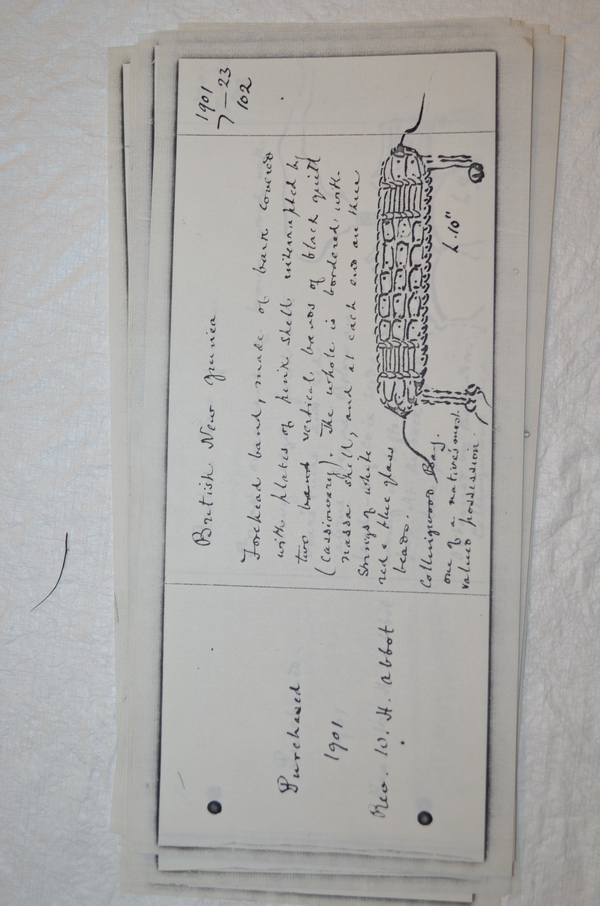 1901
7—23
102
British New Guinea
Forehead band, made of bark covered
with plates of pink shell interrupted by
two band vertical bands of black quill
(cassiowary). The whole is bordered with
nassa shell, and at each end are three
strings of white
red & blue glass
beads.
Collingwood Bay.
one of a native's most
valued possession.
L. 10"
Purchased
1901
Rev. W. H. Abbot